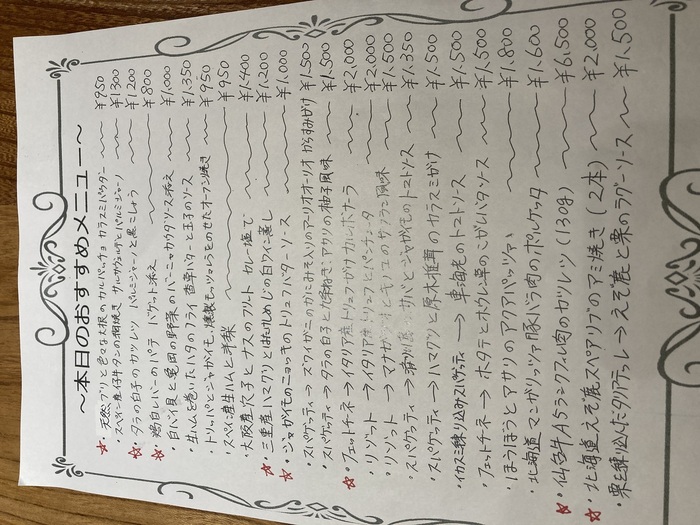 ～本日のおすすめメニュー～
☆・天然ブリと色々な大根のカルパッチョ カラスミパウダー ～ ¥950
・スペイン産仔牛タンの網焼き サルサヴェルデとパルミジャーノ ～ ¥1300
☆・タラの白子のカツレツ パルミジャーノと黒こしょう ～ ¥1200
☆・鶏白レバーのパテ バゲット添え ～ ¥800
・白バイ貝と 野菜のバーニャカウダソース添え ～ ¥1,000
・生ハムを巻いたハタのフライ 香草バターと玉子のソース ～ ¥1,350
・トリッパとジャガイモ、燻製モッツァレラとのせたオーブン焼き ～ ¥950
・スペイン産生ハムと洋梨 ～ ¥950
・大阪産穴子とナスのフリット カレー塩で ～ ¥1,400
☆・三重産ハマグリとはたけしめじの白ワイン蒸し ～ ¥1,200
☆・ジャガイモのニョッキのトリュフバターソース ～ ¥1,000
・スパゲッティ→ズワイガニのかにみそ入りのアーリオオーリオ からすみがけ ¥1,500
・スパゲッティ→タラの白子と九条ねぎ、アサリの柚子風味 ～ ¥1,500
☆・フェットチネ→イタリア産トリュフがけカルボナーラ ～ ¥2,000
・リゾット→イタリア産トリュフとパンチェッタ ～ ¥2,000
・リゾット→マナガツオと のサフラン風味 ～ ¥1,500
・スパゲッティ→ サバとジャガイモのトマトソース ～ ¥1,350
・スパゲッティ→ハマグリと原木椎茸のカラスミがけ ～ ¥1,500
・イカスミ練り込みスパゲッティ→ 海老のトマトソース ～ ¥1,500
・フェットチーネ→ホタテとホウレン草のこがしバターソース ～ ¥1,500
・ほうぼうとアサリのアクアパッツァ ～ ¥1,800
・北海道マンガリッツァ豚バラ肉のポルケッタ ～ ¥1,600
☆・仙台牛A5ランプ肉のカツレツ(130g) ～ ¥6,500
☆・北海道えぞ鹿スペアリブのアミ焼き(2本) ～ ¥2,000
・栗を練り込んだタリアテッレ→えぞ鹿と栗のラグーソース ～ ¥1,500